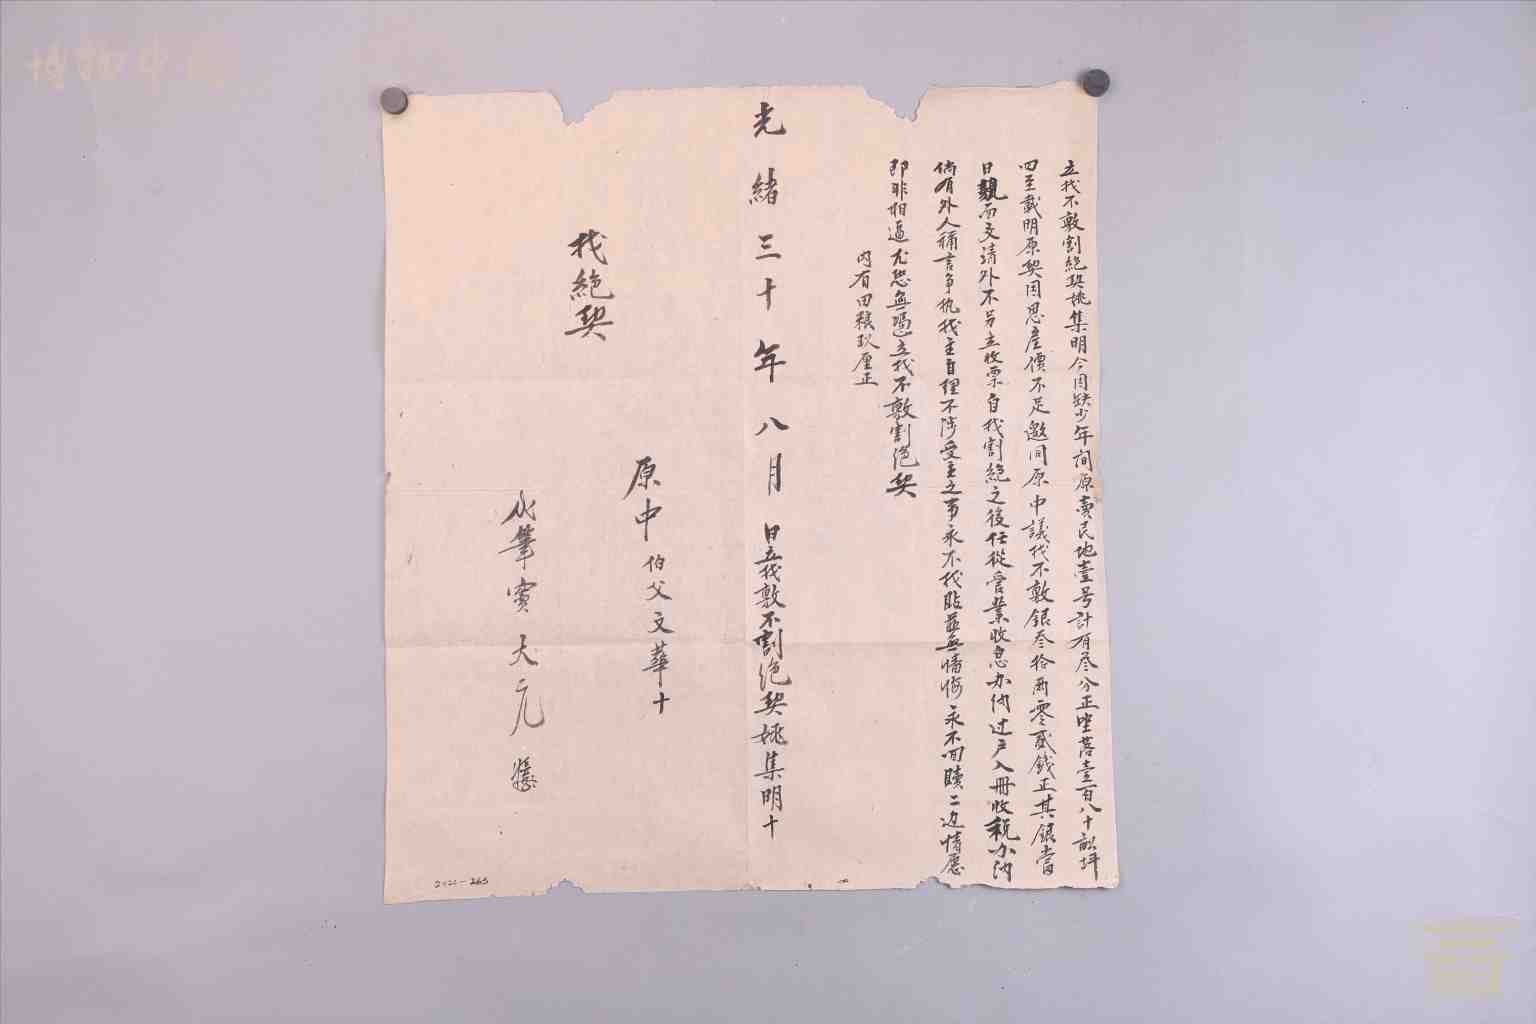 立找不敷割絕契姚集明今因缺少年間原賣民地壹号計有叁分正坐落壹百八十畝坪
四至載明原契因思產價不足邀同原中議找不敷銀叁拾兩零貳錢正其銀當
日親面交清外不另立收票自找割絕之後任從管業收息办纳过户入冊收税办纳
倘有外人稱言争执找主自理不涉受主之事永不找貼並無憣悔永不回贖二边情愿
即非相逼尤恐無憑立找不敷割绝契
内有田粮玖厘正
光緒三十年八月 日立找敷不割绝契姚集明十
原中 伯父文華十
找絕契
代筆 寅大元 押
2021-265